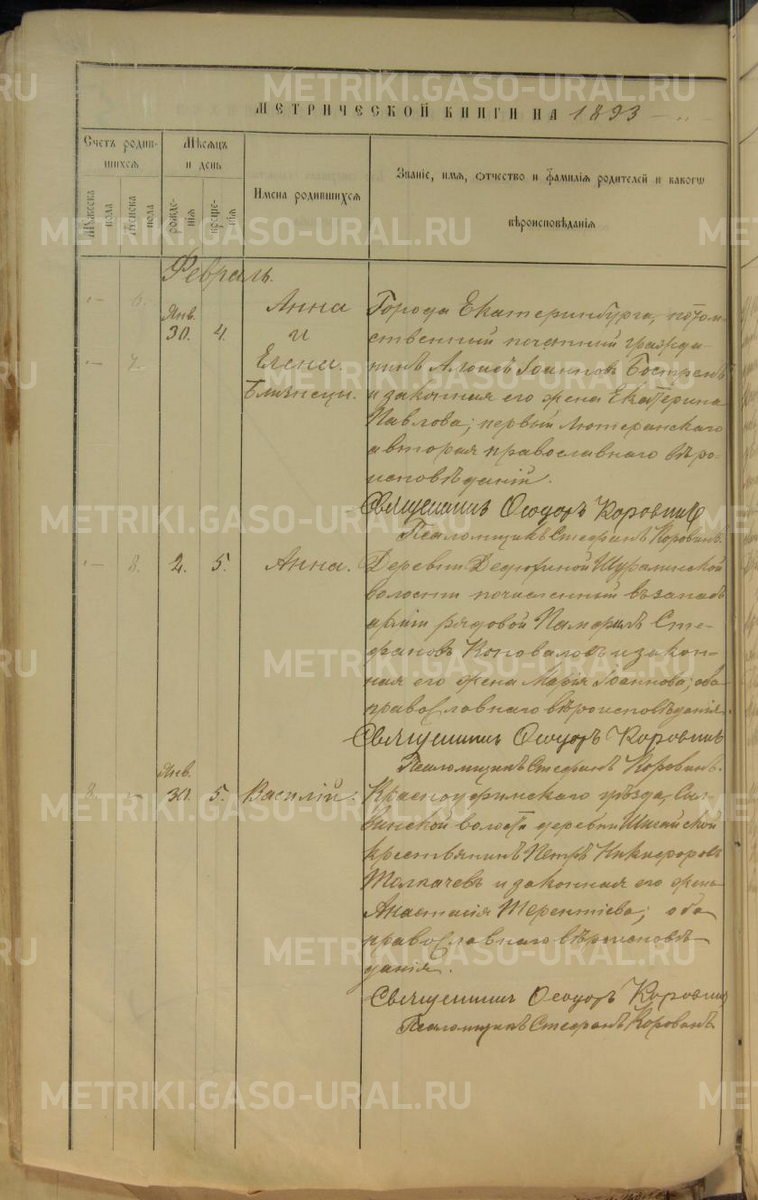 МЕТРИЧЕСКОЙ КНИГИ НА 1893
Счетъ родив-
шихся
Мѣсяцъ
и день
Имена родившихся
Званіе, имя, отчество и фамилія родителей и какого
вѣроисповѣданія
Мужеска пола
Женска пола
рожде-
нія
креще-
нія
Февраль.
6.
7.
Янв.
30.
4.
Анна
и
Елена.
Близнецы.
Города Екатеринбурга, потом-
ственный почетный гражда-
нинъ Іоанновъ Бостремъ
и законная его жена Екатерина
Павлова; первый лютеранскаго
а вторая православнаго вѣро-
исповѣданій.
Священникъ Ѳеодоръ Коровинъ
Псаломщикъ Стефанъ Коровинъ.
8.
2.
5.
Анна.
Деревни Дедюхиной Шуралинской
волости почисленный въ запасъ
арміи рядовой Памфилъ Сте-
фановъ Коноваловъ и закон-
ная его жена Марія Іоаннова; оба
православнаго вѣроисповѣданія
Священникъ Ѳеодоръ Коровинъ
Псаломщикъ Стефанъ Коровинъ.
8.
Янв.
30.
5.
Василій.
Красноуфимскаго уѣзда, Сыл-
винской волости деревни
крестьянинъ Петръ Никифоровъ
Толкачевъ и законная его жена
Анастасія Терентіева; оба
православнаго вѣроисповѣ-
данія.
Священникъ Ѳеодоръ Коровинъ
Псаломщикъ Стефанъ Коровинъ
METRIKI.GASO-URAL.RU